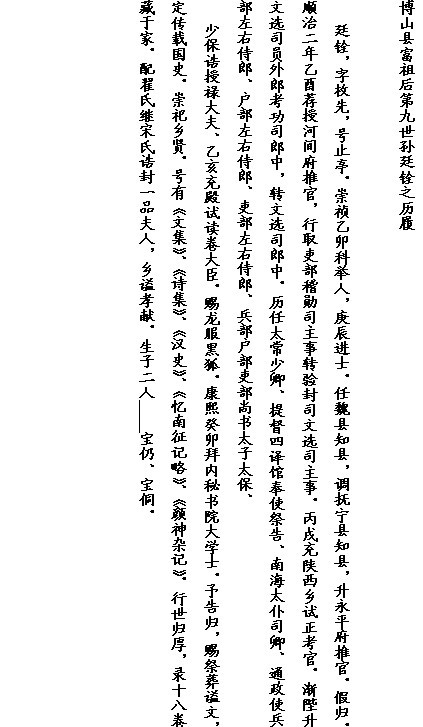 博山县富祖后第九世孙廷铨之历履
廷铨，字枚先，号止亭。崇祯乙卯科举人，庚辰进士。任魏县知县，调抚宁县知县，升永平府推官。假归。
顺治二年乙酉荐授河间府推官，行取吏部稽勋司主事转验封司文选司主事。丙戌充陕西乡试正考官。渐陞升
文选司员外郎考功司郎中，转文选司郎中。历任太常少卿、提督四译馆奉使祭告、南海太仆司卿、通政使兵
部左右侍郎、户部左右侍郎、吏部左右侍郎、兵部户部吏部尚书太子太保、
少保诰授禄大夫、乙亥充殿试读卷大臣。赐龙服黑狐。康熙癸卯拜内秘书院大学士。予告归，赐祭葬谥文，
定传载国史。崇祀乡贤。号有《文集》、《诗集》、《汉史》、《忆南征记略》、《颜神杂记》。行世归厚，录十八卷
藏于家。配翟氏继宋氏诰封一品夫人，乡谥孝献。生子二人——宝仍、宝侗。